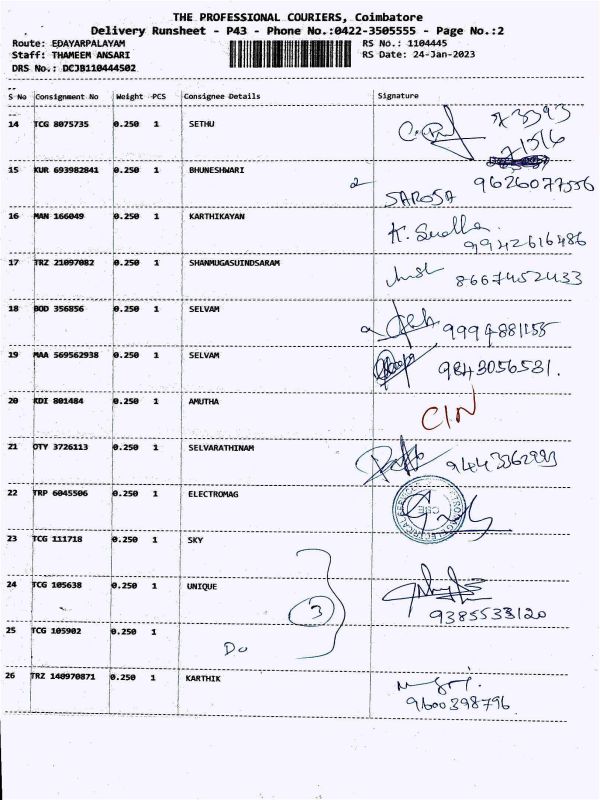 THE PROFESSIONAL COURIERS, Coimbatore
Delivery Runsheet - P43 - Phone No.:0422-3505555 - Page No.:2
Route: EDAYARPALAYAM RS No.: 1104445
Staff: THAMEEM ANSARI RS Date: 24-Jan-2023
DRS No.: DCJB110444502
S No Consignment No Weight PCS Consignee Details Signature
14 TCG 8075735 0.250 1 SETHU
15 KUR 693982841 0.250 1 BHUNESHWARI
SAROSA 9626077556
16 MAN 166049 0.250 1 KARTHIKAYAN
9942616486
17 TRZ 21097082 0.250 1 SHANMUGASUINDSARAM
8667452433
18 BOD 356856 0.250 1 SELVAM
9994881155
19 MAA 569562938 0.250 1 SELVAM
9843056531.
20 KDI 801484 0.250 1 AMUTHA
CIN
21 OTY 3726113 0.250 1 SELVARATHINAM
9443362993
22 TRP 6045506 0.250 1 ELECTROMAG
CBE
23 TCG 111718 0.250 1 SKY
24 TCG 105638 0.250 1 UNIQUE
3
9385533120
25 TCG 105902 0.250 1
Do
26 TRZ 140970871 0.250 1 KARTHIK
9600398796.